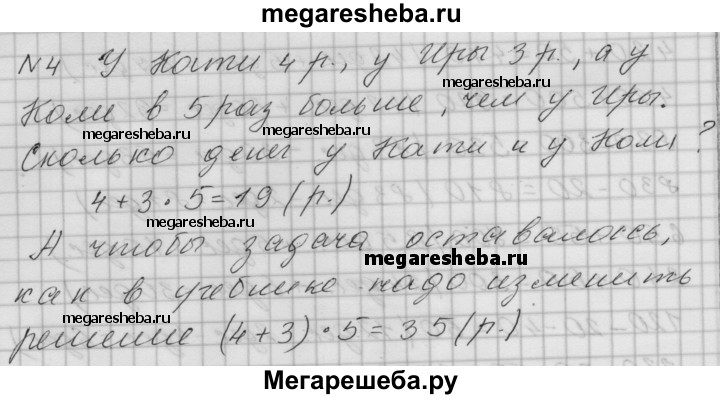 megaresheba.ru
N4 У Кати 4 р., у Иры 3 р., а у
megaresheba.ru
Коли в 5 раз больше, чем у Иры.
megaresheba.ru megaresheba.ru
Сколько денег у Кати и у Коли ?
4 + 3 · 5 = 19 (р.)
megaresheba.ru
А чтобы задача оставалось,
megaresheba.ru
как в учебнике надо изменить
megaresheba.ru
решение (4 + 3) · 5 = 35 (р.)
megaresheba.ru
Мегарешеба.ру